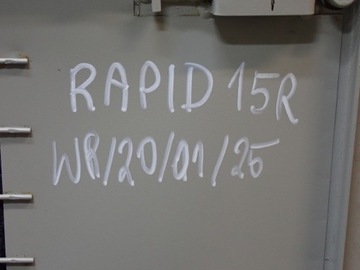 RAPID 15R
WR/20/01/25